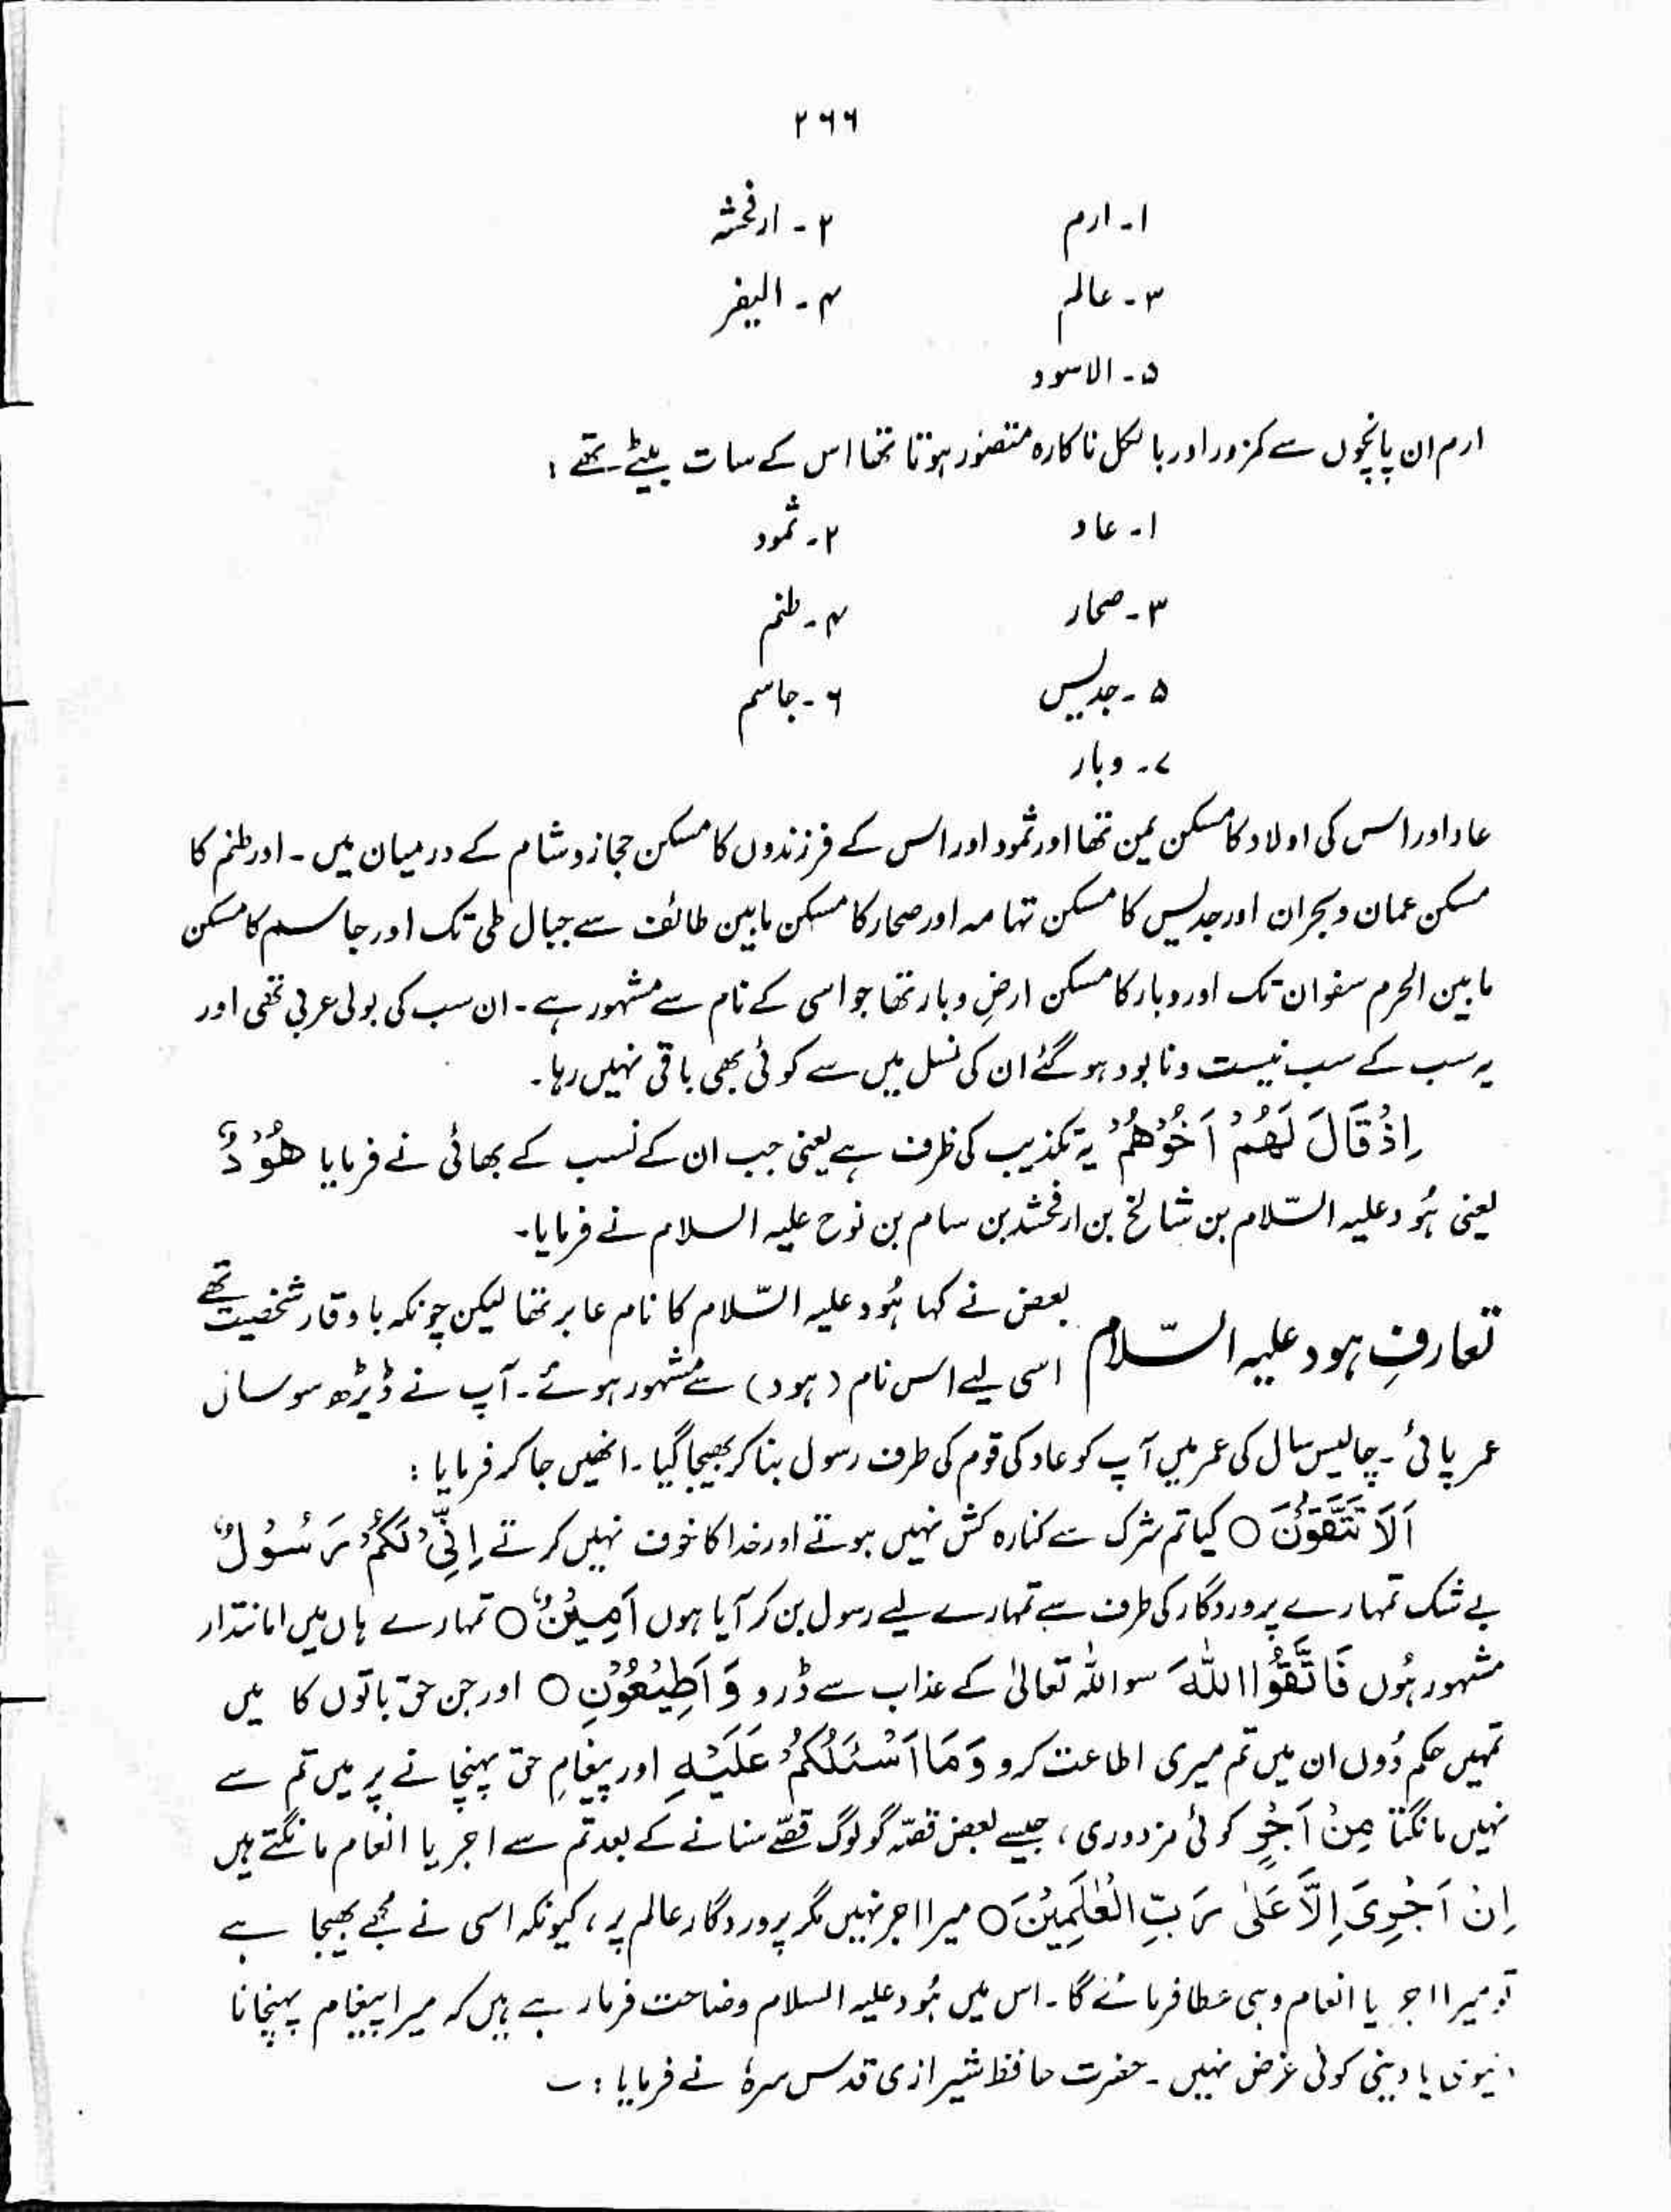 ۲۶۶
۱۔ ارم ۲۔ ارفخشد
۳۔ عالم ۴۔ الیفر
۵۔ الاسود
ارم ان پانچوں سے کمزور اور بالکل ناکارہ متصور ہوتا تھا اس کے سات بیٹے تھے :
۱۔ عاد ۲۔ ثمود
۳۔ صحار ۴۔ طنم
۵۔ جدیس ۶۔ جاسم
۷۔ وبار
عاد اور اس کی اولاد کا مسکن یمن تھا اور ثمود اور اس کے فرزندوں کا مسکن حجاز و شام کے درمیان میں ۔ اور طنم کا
مسکن عمان و بحران اور جدیس کا مسکن تہامہ اور صحار کا مسکن مابین طائف سے جبال طی تک اور جاسم کا مسکن
مابین الحرم سفوان تک اور وبار کا مسکن ارضِ وبار تھا جو اسی کے نام سے مشہور ہے ۔ ان سب کی بولی عربی تھی اور
یہ سب کے سب نیست و نابود ہو گئے ان کی نسل میں سے کوئی بھی باقی نہیں رہا ۔
اِذْ قَالَ لَهُمْ اَخُوْهُمْ یہ تکذیب کی ظرف ہے یعنی جب ان کے نسب کے بھائی نے فرمایا هُوْدٌ
یعنی ہُود علیہ السّلام بن شالخ بن ارفخشد بن سام بن نوح علیہ السلام نے فرمایا ۔
تعارفِ ہود علیہ السّلام بعض نے کہا ہُود علیہ السّلام کا نام عابر تھا لیکن چونکہ باوقار شخصیت تھے
اسی لیے اس نام (ہود) سے مشہور ہوئے ۔ آپ نے ڈیڑھ سو سال
عمر پائی ۔ چالیس سال کی عمر میں آپ کو عاد کی قوم کی طرف رسول بنا کر بھیجا گیا ۔ انھیں جا کر فرمایا :
اَلَا تَتَّقُوْنَ ○ کیا تم شرک سے کنارہ کش نہیں ہوتے اور خدا کا خوف نہیں کرتے اِنِّیْ لَکُمْ رَسُوْلٌ
بے شک تمہارے پروردگار کی طرف سے تمہارے لیے رسول بن کر آیا ہوں اَمِیْنٌ ○ تمہارے ہاں میں امانتدار
مشہور ہُوں فَاتَّقُوا اللّٰهَ سو اللہ تعالیٰ کے عذاب سے ڈرو وَ اَطِیْعُوْنِ ○ اور جن حق باتوں کا میں
تمہیں حکم دُوں ان میں تم میری اطاعت کرو وَ مَا اَسْئَلُکُمْ عَلَیْهِ اور پیغامِ حق پہنچانے پر میں تم سے
نہیں مانگتا مِنْ اَجْرٍ کوئی مزدوری ، جیسے بعض قصّہ گو لوگ قصّے سنانے کے بعد تم سے اجر یا انعام مانگتے ہیں
اِنْ اَجْرِیَ اِلَّا عَلٰی رَبِّ الْعٰلَمِیْنَ ○ میرا اجر نہیں مگر پروردگار عالم پر ، کیونکہ اسی نے مجھے بھیجا ہے
تو میرا اجر یا انعام وہی عطا فرمائے گا ۔ اس میں ہُود علیہ السلام وضاحت فرما رہے ہیں کہ میرا پیغام پہنچانا
دنیوی یا دینی کوئی غرض نہیں ۔ حضرت حافظ شیرازی قدس سرہٗ نے فرمایا : ؎